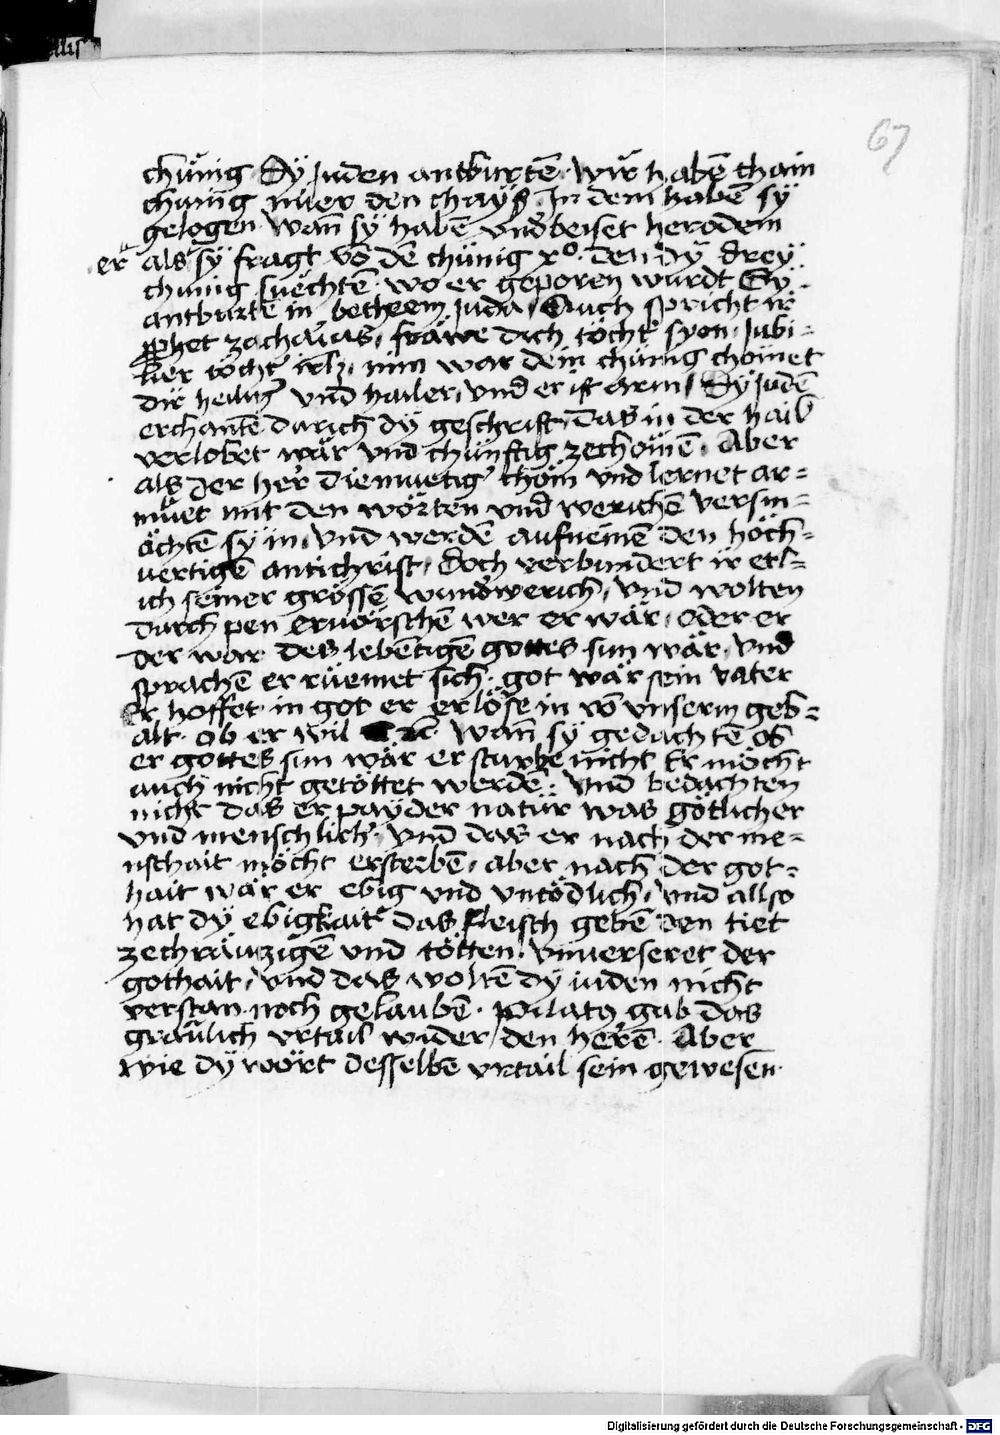 67
chünig · Dÿ Juden antburtē · wir habē chain
chünig nüer den chaÿß · In dem habē sÿ
gelogen · wan̄ sÿ habē vndbeiset herodem
er als sÿ fragt vō dē chünig xº · den dÿ dreÿ
chünig suechtē · wo er geporen wurdt Sÿ
antburtē in betheem juda / Auch spricht ir
ꝓhet zachaias / fräwe dich tocht' syon / Jubi=
lier tocht' irlꝫ / nim war dein chünig chōmet
dir heilig' vnd hailer / vnd er ist arm / Dÿ Judē
erchantē durich dÿ geschrift / das in der hail
verlobet wär vnd chünftig zechömē / Aber
als der her' diemuetig' chōm vnd lernet ar=
müet mit den wörten vnd werichē versm=
ächtē sÿ in / vnd werdē aufnemē den höch=
uertigē antichrist / doch verbundert ir etl=
ich seiner grössē wundwerich / vnd wolten
durch pen eruorschē wer er wär / oder er
der war des lebentigē gottes sun wär / vnd
sprachē er rüemet sich · got wär sein vater
Er hoffet · in got er erlöse in vō vnserm geb=
alt · ob er wil ꝛc̄ · wan̄ sÿ gedachtē ob
er gottes sun wär er sturbe nicht Er möcht
auch nicht getöttet werdē : vnd bedachten
nicht das er paÿder natür was götlicher
vnd menschlich' / vnd das er nach der me=
nschait möcht ersterbē / aber nach der got=
hait wär er ebig vnd vntödlich / vnd allso
hat dÿ ebigkait das fleisch gebē den tiet
zechräwzigē vnd tötten / vnuerseret der
gothait / vnd das woltē dÿ iuden nicht
verstan noch gelaubē · pilatꝯ gab das
gräulich vrtail wider den herē · Aber
wie dÿ wört desselbē vrtail sein gewesen ·
Digitalisierung gefördert durch die Deutsche Forschungsgemeinschaft - DFG